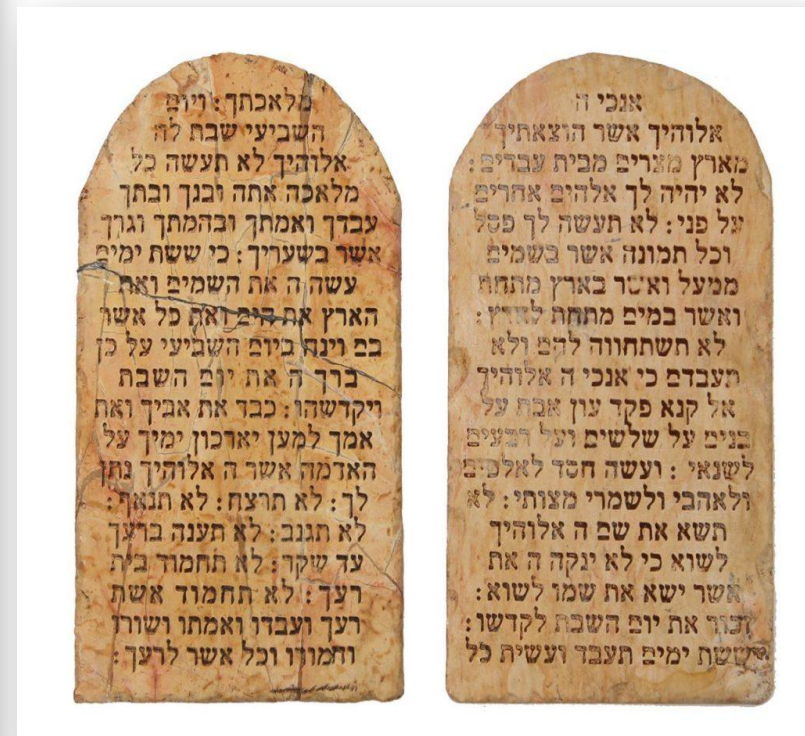 אנכי ה
אלוהיך אשר הוצאתיך
מארץ מצרים מבית עבדים:
לא יהיה לך אלהים אחרים
על פני: לא תעשה לך פסל
וכל תמונה אשר בשמים
ממעל ואשר בארץ מתחת
ואשר במים מתחת לארץ:
לא תשתחווה להם ולא
תעבדם כי אנכי ה אלוהיך
אל קנא פקד עון אבת על
בנים על שלשים ועל רבעים
לשנאי: ועשה חסד לאלפים
ולאהבי ולשמרי מצותי: לא
תשא את שם ה אלוהיך
לשוא כי לא ינקה ה את
אשר ישא את שמו לשוא:
זכור את יום השבת לקדשו:
ששת ימים תעבד ועשית כל
מלאכתך: ויום
השביעי שבת לה
אלוהיך לא תעשה כל
מלאכה אתה ובנך ובתך
עבדך ואמתך ובהמתך וגרך
אשר בשעריך: כי ששת ימים
עשה ה את השמים ואת
הארץ את הים ואת כל אשר
בם וינח ביום השביעי על כן
ברך ה את יום השבת
ויקדשהו: כבד את אביך ואת
אמך למען יארכון ימיך על
האדמה אשר ה אלוהיך נתן
לך: לא תרצח: לא תנאף:
לא תגנב: לא תענה ברעך
עד שקר: לא תחמוד בית
רעך: לא תחמוד אשת
רעך ועבדו ואמתו ושורו
וחמורו וכל אשר לרעך: